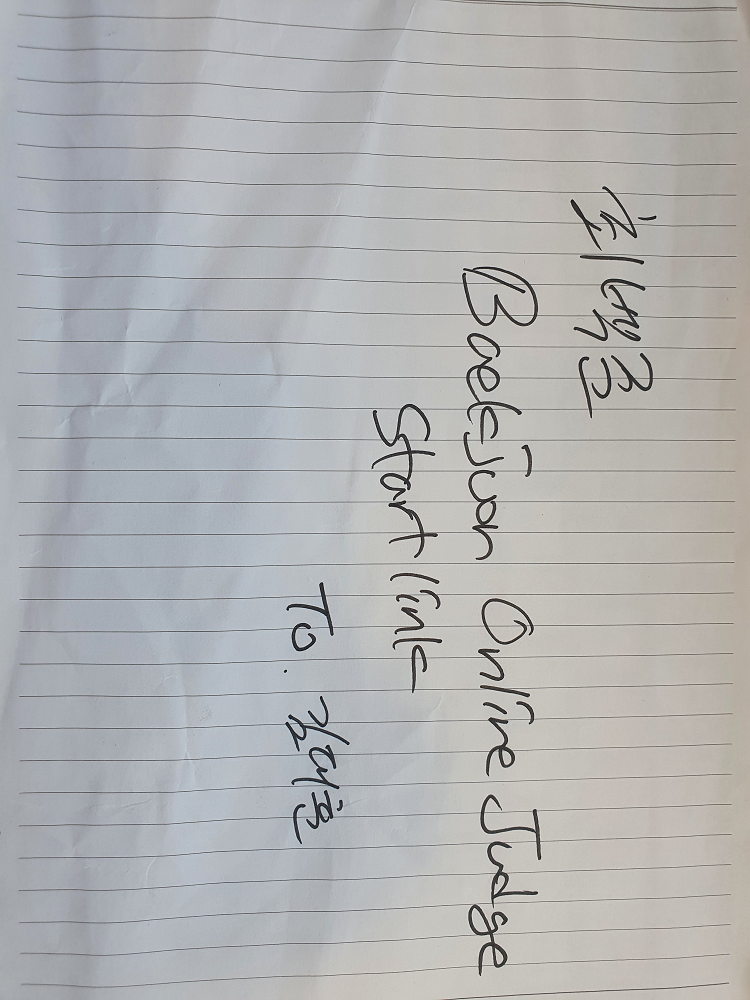 최백준
BaekJoon Online Judge
Startlink
To.